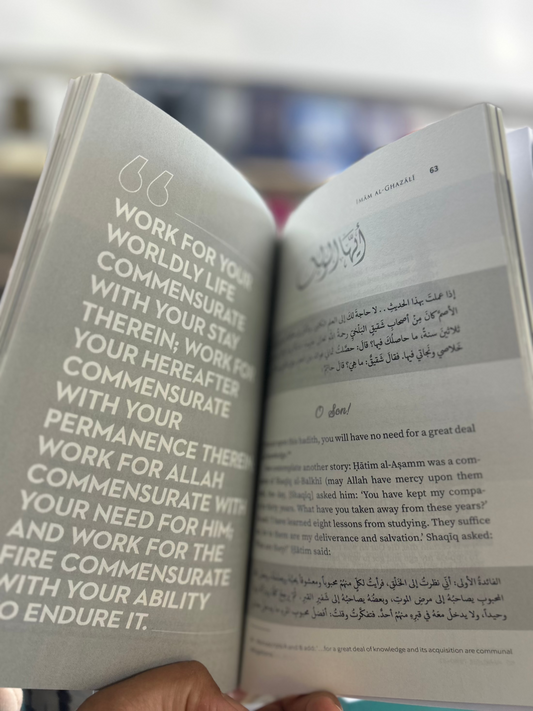 WORK FOR YOUR
WORLDLY LIFE
COMMENSURATE
WITH YOUR STAY
THEREIN; WORK FOR
YOUR HEREAFTER
COMMENSURATE
WITH YOUR
PERMANENCE THEREIN
WORK FOR ALLAH
COMMENSURATE WITH
YOUR NEED FOR HIM;
AND WORK FOR THE
FIRE COMMENSURATE
WITH YOUR ABILITY
TO ENDURE IT.
IMĀM AL-GHAZĀLĪ 63
أيها الولد
إذا عملتَ بهذا الحديثِ . . لا حاجةَ لك إلى العلمِ
الأصمّ كانَ مِنْ أصحابِ شقيقٍ البلخيّ رحمةُ الله
ثلاثينَ سنةً، ما حاصلُكَ فيها؟ قالَ: حصّلتُ
خلاصي ونجاتي فيها. فقالَ شقيقٌ: ما هي؟ قالَ
O Son!
upon this hadith, you will have no need for a great deal
contemplate another story: Ḥātim al-Aṣamm was a com-
of Shaqīq al-Balkhī (may Allah have mercy upon them
day, [Shaqīq] asked him: ‘You have kept my compa-
thirty years. What have you taken away from these years?’
I have learned eight lessons from studying. They suffice
in them are my deliverance and salvation.’ Shaqīq asked:
are they?’ Ḥātim said:
الفائدةُ الأولى: أني نظرتُ إلى الخلقِ، فرأيتُ لكلٍّ منهُم محبوباً ومعشوقاً
المحبوبِ يصاحبُهُ إلى مرضِ الموتِ، وبعضُهُ يصاحبُهُ إلى شفيرِ القبرِ
وحيداً، ولا يدخلُ معهُ في قبرِهِ منهُم أحدٌ. فتفكّرتُ وقلتُ: أفضلُ محبوبِ
for a great deal of knowledge and its acquisition are communal